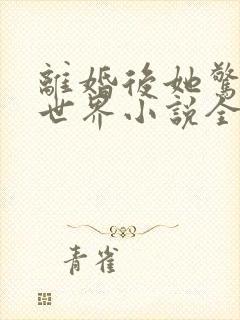 離婚後她驚
世界小說全
青雀